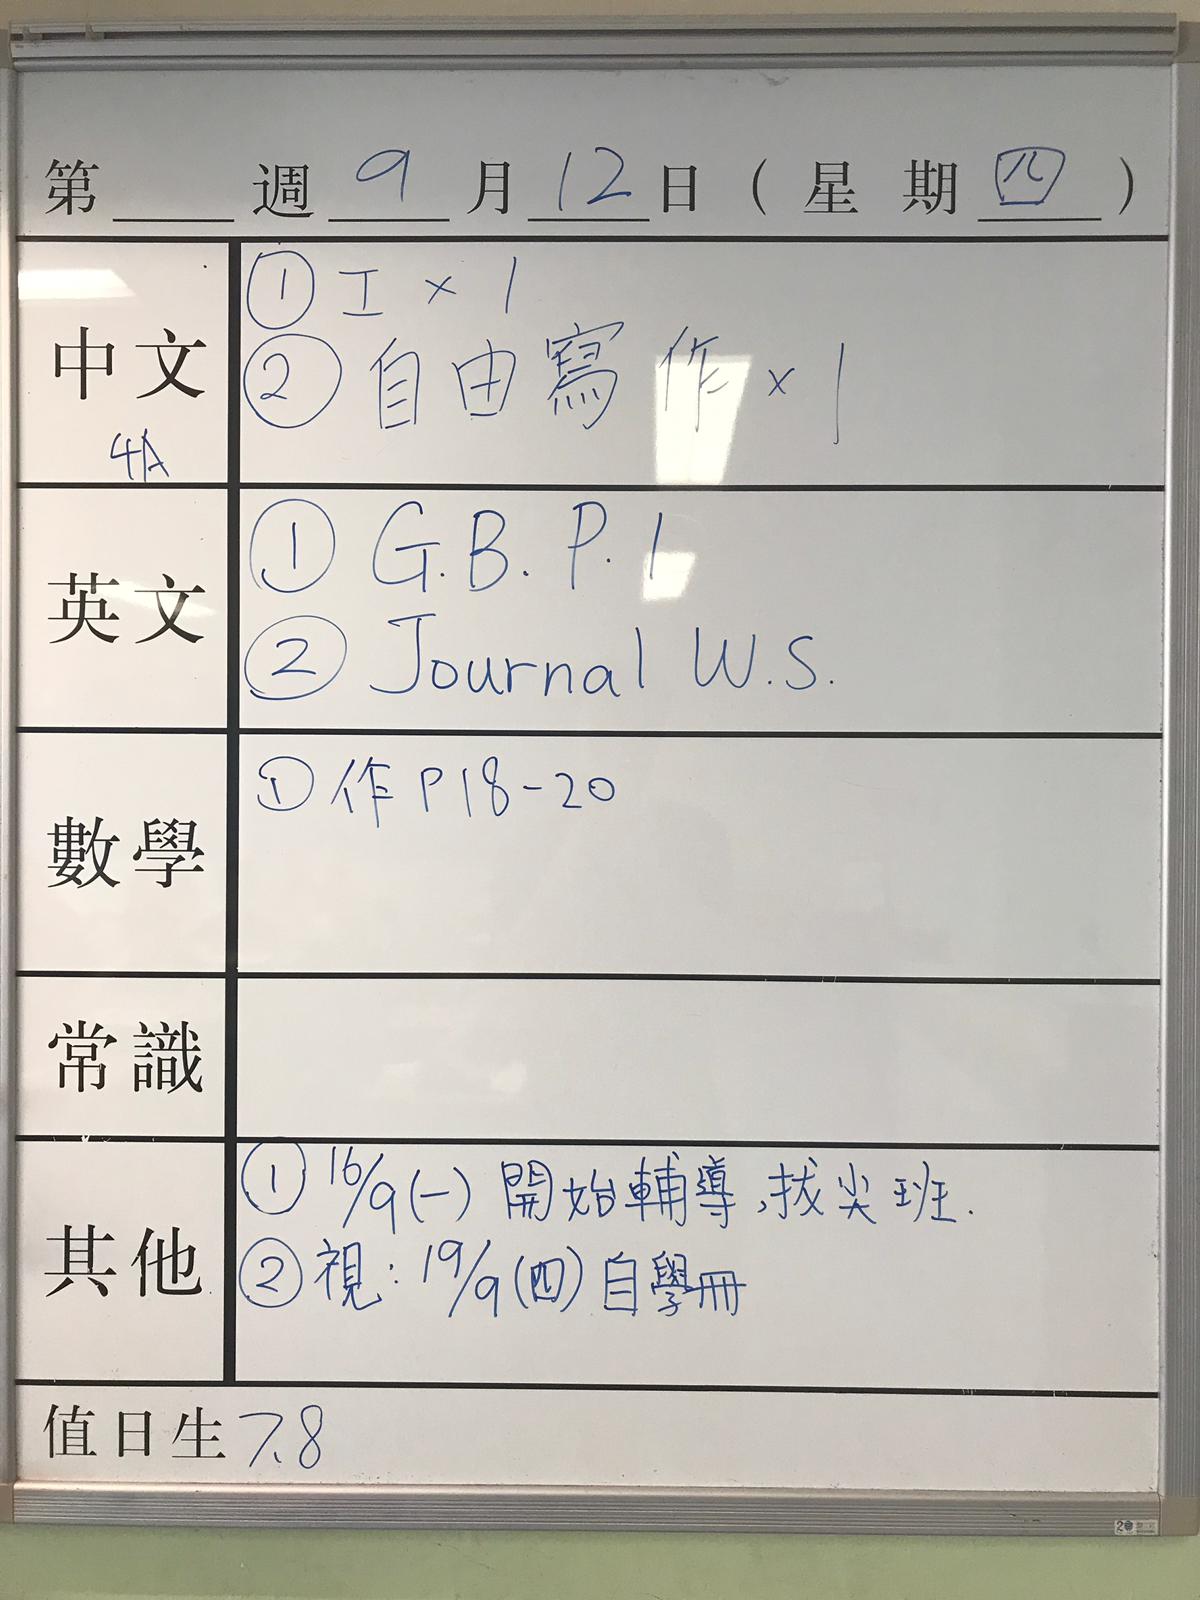 第____週 9 月 12 日 ( 星 期 四 )
中文
4A
① 工 × 1
② 自由寫作 × 1
英文
① G.B. P. 1
② Journal W.S.
數學
① 作 P 18-20
常識
其他
① 16/9(一) 開始輔導、拔尖班.
② 視: 19/9(四) 自學冊
值日生 7、8